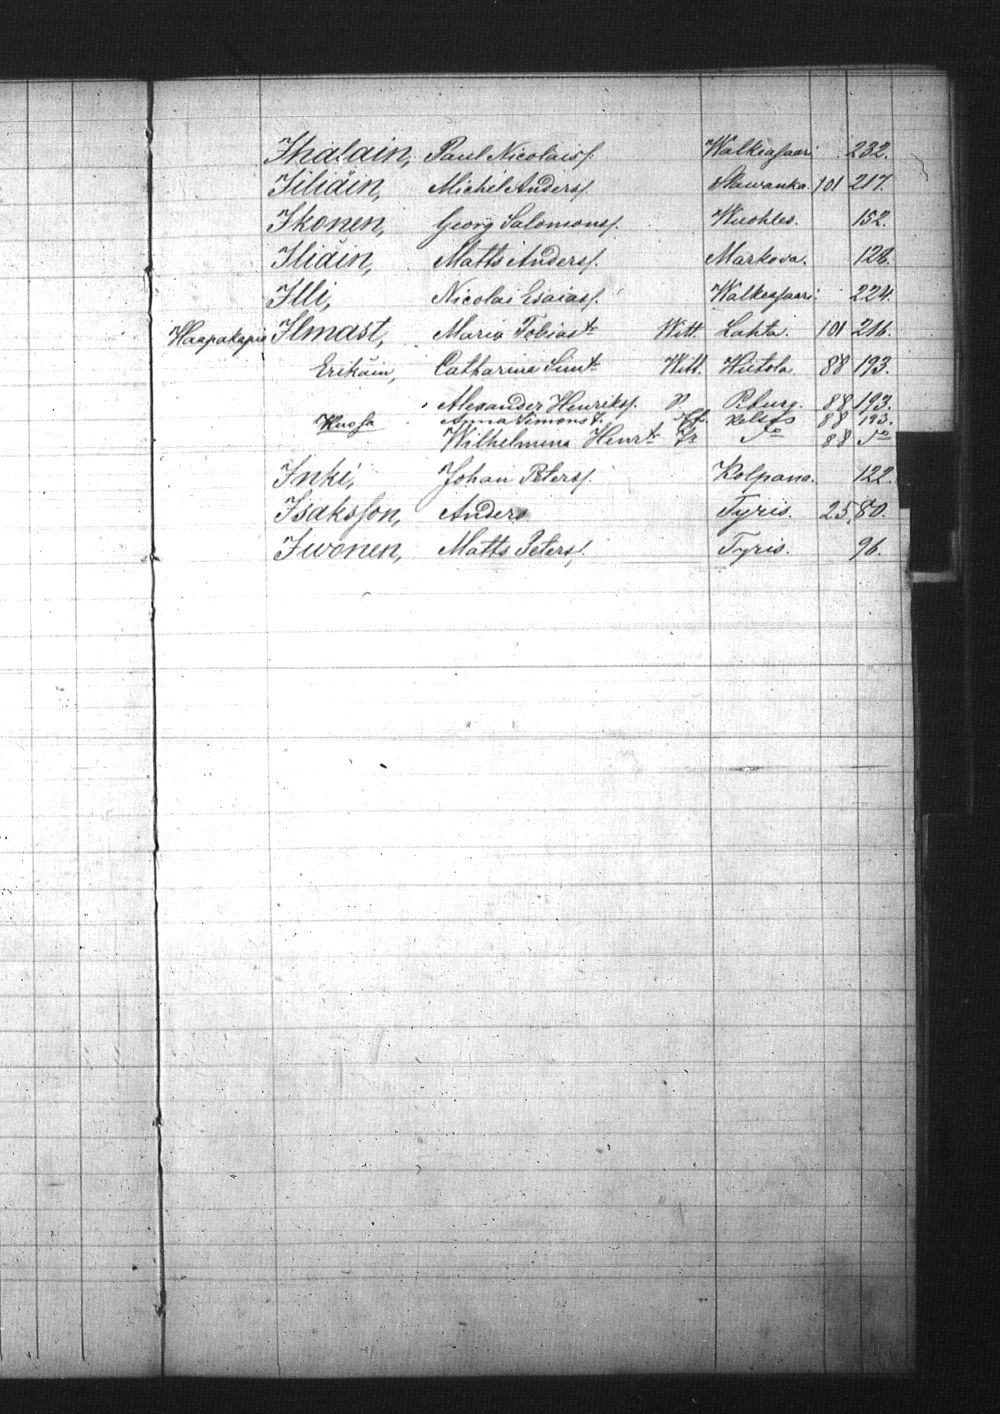 Ihalain, Paul Nicolaisf. Walkeasaari 232.
Iiliäin, Michel Andersf. Stawanka. 101 217.
Ikonen, Georg Salomonsf. Kuokles. 152.
Iliäin, Matts Andersf. Markova. 128.
Illi, Nicolai Esaiasf. Walkeasaari 224.
Haapakapia Ilmast, Maria Tobias tr Witt. Lahta. 101 216.
Erikäin, Catharina Sim tr Witt. Hiitola 88 193.
Alexander Henriksf. P. Pburg. 88 193.
Kuosa Anna Simons t. Hf. Keltis 88 193.
Wilhelmina Henr tr Jr Do 88 Do
Inki, Johan Petersf. Kolpana. 122.
Isaksson, Anders Tyris. 25. 80.
Iwonen, Matts Petersf. Tyris. 96.